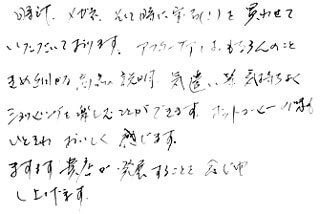 時計、メガネ、そして時に宝石(!)を買わせて
いただいております。アフターケアはもちろんのこと
きめ細かな商品の説明、気遣い等気持ちよく
ショッピングを楽しむことができます。ホットコーヒーの味も
ひときわおいしく感じます。
ますます貴店が発展することを念じ申
し上げます。